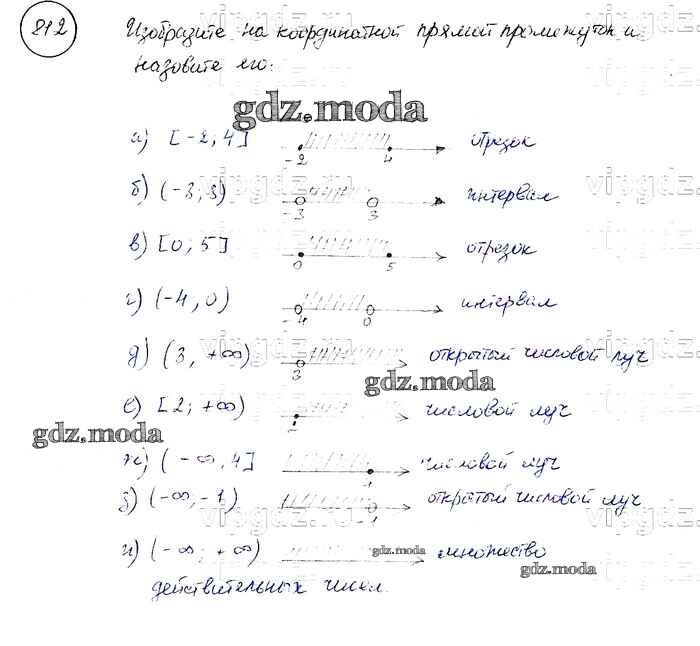 812 Изобразите на координатной прямой промежуток и
назовите его:
gdz.moda
а) [-2; 4] -2 4 отрезок
vipgdz.ru
б) (-3; 3) -3 3 интервал
в) [0; 5] 0 5 отрезок
г) (-4, 0) -4 0 интервал
vipgdz.ru
д) (3, +∞) 3 открытый числовой луч
gdz.moda
е) [2; +∞) числовой луч
gdz.moda
ж) (-∞, 4] числовой луч
з) (-∞, -1) -1 открытый числовой луч
vipgdz.ru
и) (-∞; +∞) gdz.moda множество
gdz.moda
действительных чисел.